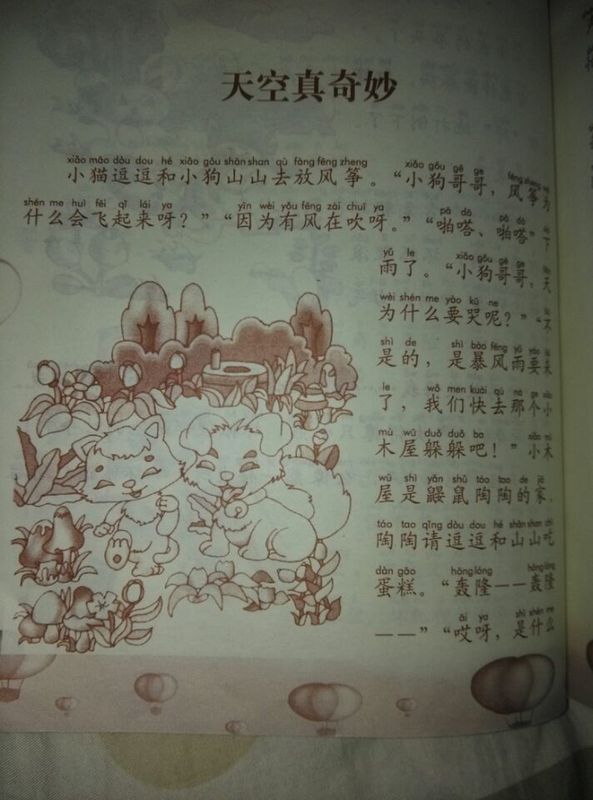 天空真奇妙
xiǎo māo dòu dou hé xiǎo gǒu shān shan qù fàng fēng zheng xiǎo gǒu gē ge fēng zheng wèi
小猫逗逗和小狗山山去放风筝。“小狗哥哥，风筝为
shén me huì fēi qǐ lái ya yīn wèi yǒu fēng zài chuī ya pā dā pā dā
什么会飞起来呀？”“因为有风在吹呀。”“啪嗒、啪嗒”下
yǔ le xiǎo gǒu gē ge
雨了。“小狗哥哥，天
wèi shén me yào kū ne
为什么要哭呢？”“不
shì de shì bào fēng yǔ yào
是的，是暴风雨要来
le wǒ men kuài qù nà ge xiǎo
了，我们快去那个小
mù wū duǒ duo ba xiǎo mù
木屋躲躲吧！”小木
wū shì yǎn shǔ táo tao de jiā
屋是鼹鼠陶陶的家，
táo tao qǐng dòu dou hé shān shan chī
陶陶请逗逗和山山吃
dàn gāo hōng lóng hōng lóng
蛋糕。“轰隆——轰隆
āi ya shì shén me
——”“哎呀，是什么